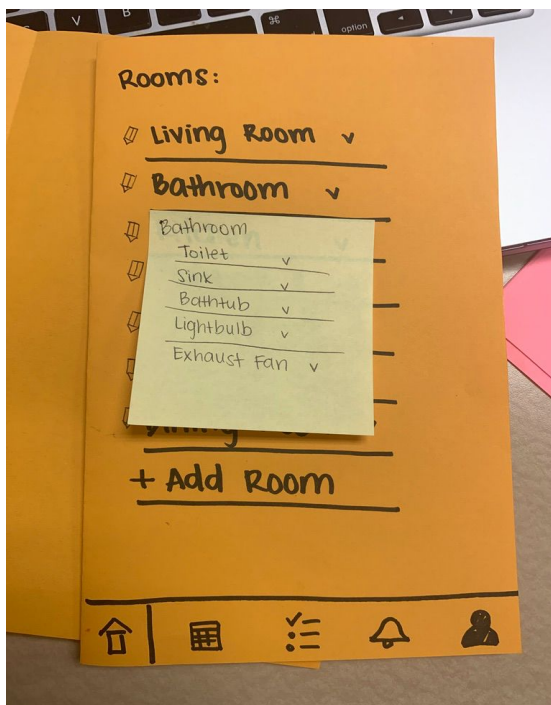 V
B
⌘
option
Rooms:
Living Room v
Bathroom v
Bathroom
Toilet v
Sink v
Bathtub v
Lightbulb v
Exhaust Fan v
Dining
+ Add Room